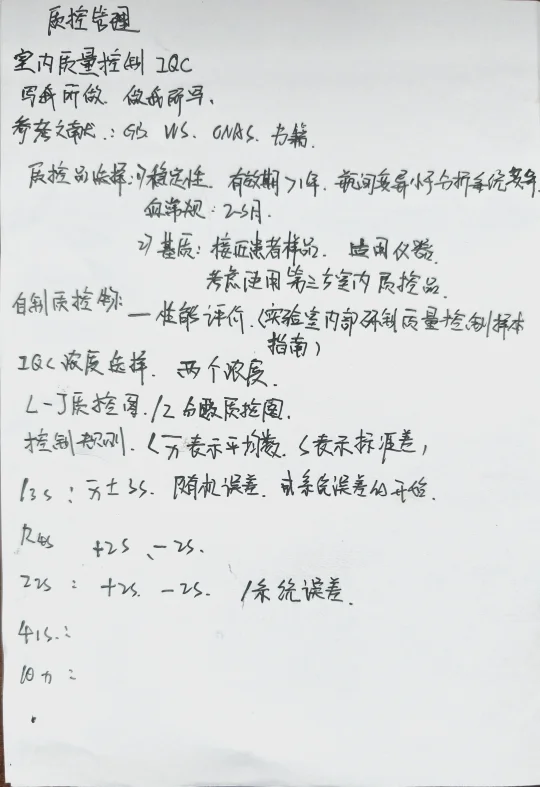 质控管理
室内质量控制 IQC
写我所做. 做我所写.
参考文献: GB. WS. CNAS. 书籍.
质控品选择: 1) 稳定性. 有效期>1年. 瓶间变异小于分析系统变异.
血常规: 2-3月.
2) 基质: 接近患者样品. 适用仪器.
考虑使用第三方室内质控品.
自制质控物:
— 性能评价. (实验室内部研制质量控制样本
指南)
IQC浓度选择. 两个浓度.
L-J质控图. / Z分数质控图.
控制规则. < x̄表示平均数. S表示标准差,
13s: x̄±3s. 随机误差. 或系统误差的开始.
R4s +2s、-2s.
22s: +2s. -2s. /系统误差.
41s.:
10x̄: